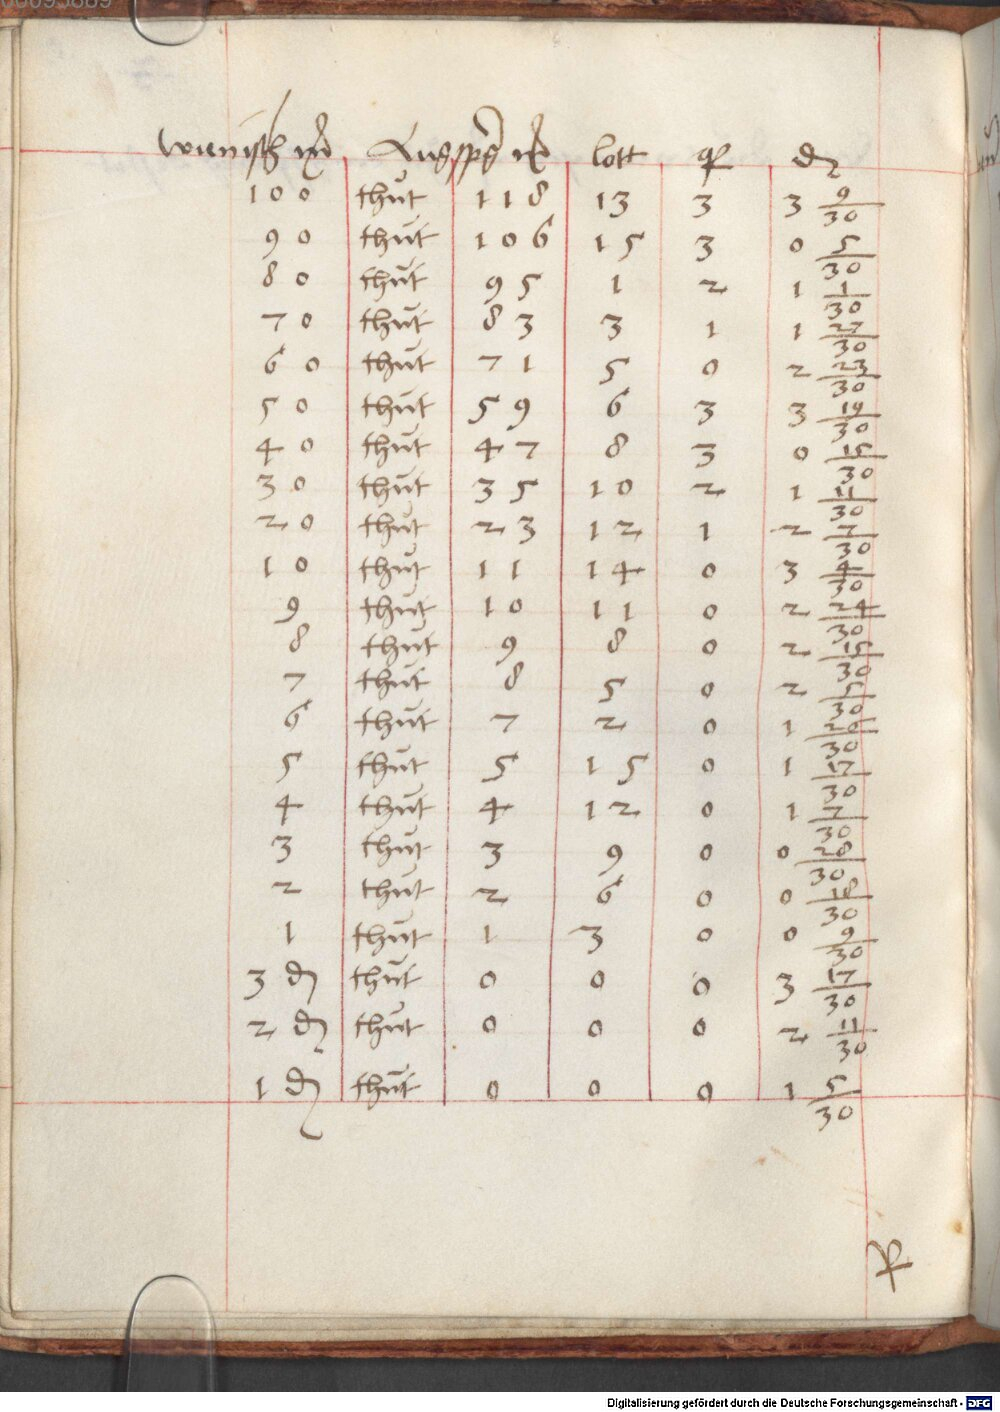 wienisch m Augspg m lott q d
100 thut 118 13 3 3 9/30
90 thut 106 15 3 0 5/30
80 thut 95 1 2 1 1/30
70 thut 83 3 1 1 27/30
60 thut 71 5 0 2 23/30
50 thut 59 6 3 3 19/30
40 thut 47 8 3 0 15/30
30 thut 35 10 2 1 11/30
20 thut 23 12 1 2 7/30
10 thut 11 14 0 3 4/30
9 thut 10 11 0 2 24/30
8 thut 9 8 0 2 15/30
7 thut 8 5 0 2 5/30
6 thut 7 2 0 1 26/30
5 thut 5 15 0 1 17/30
4 thut 4 12 0 1 7/30
3 thut 3 9 0 0 28/30
2 thut 2 6 0 0 18/30
1 thut 1 3 0 0 9/30
3 d thut 0 0 0 3 17/30
2 d thut 0 0 0 2 11/30
1 d thut 0 0 0 1 5/30
Digitalisierung gefördert durch die Deutsche Forschungsgemeinschaft - DFG